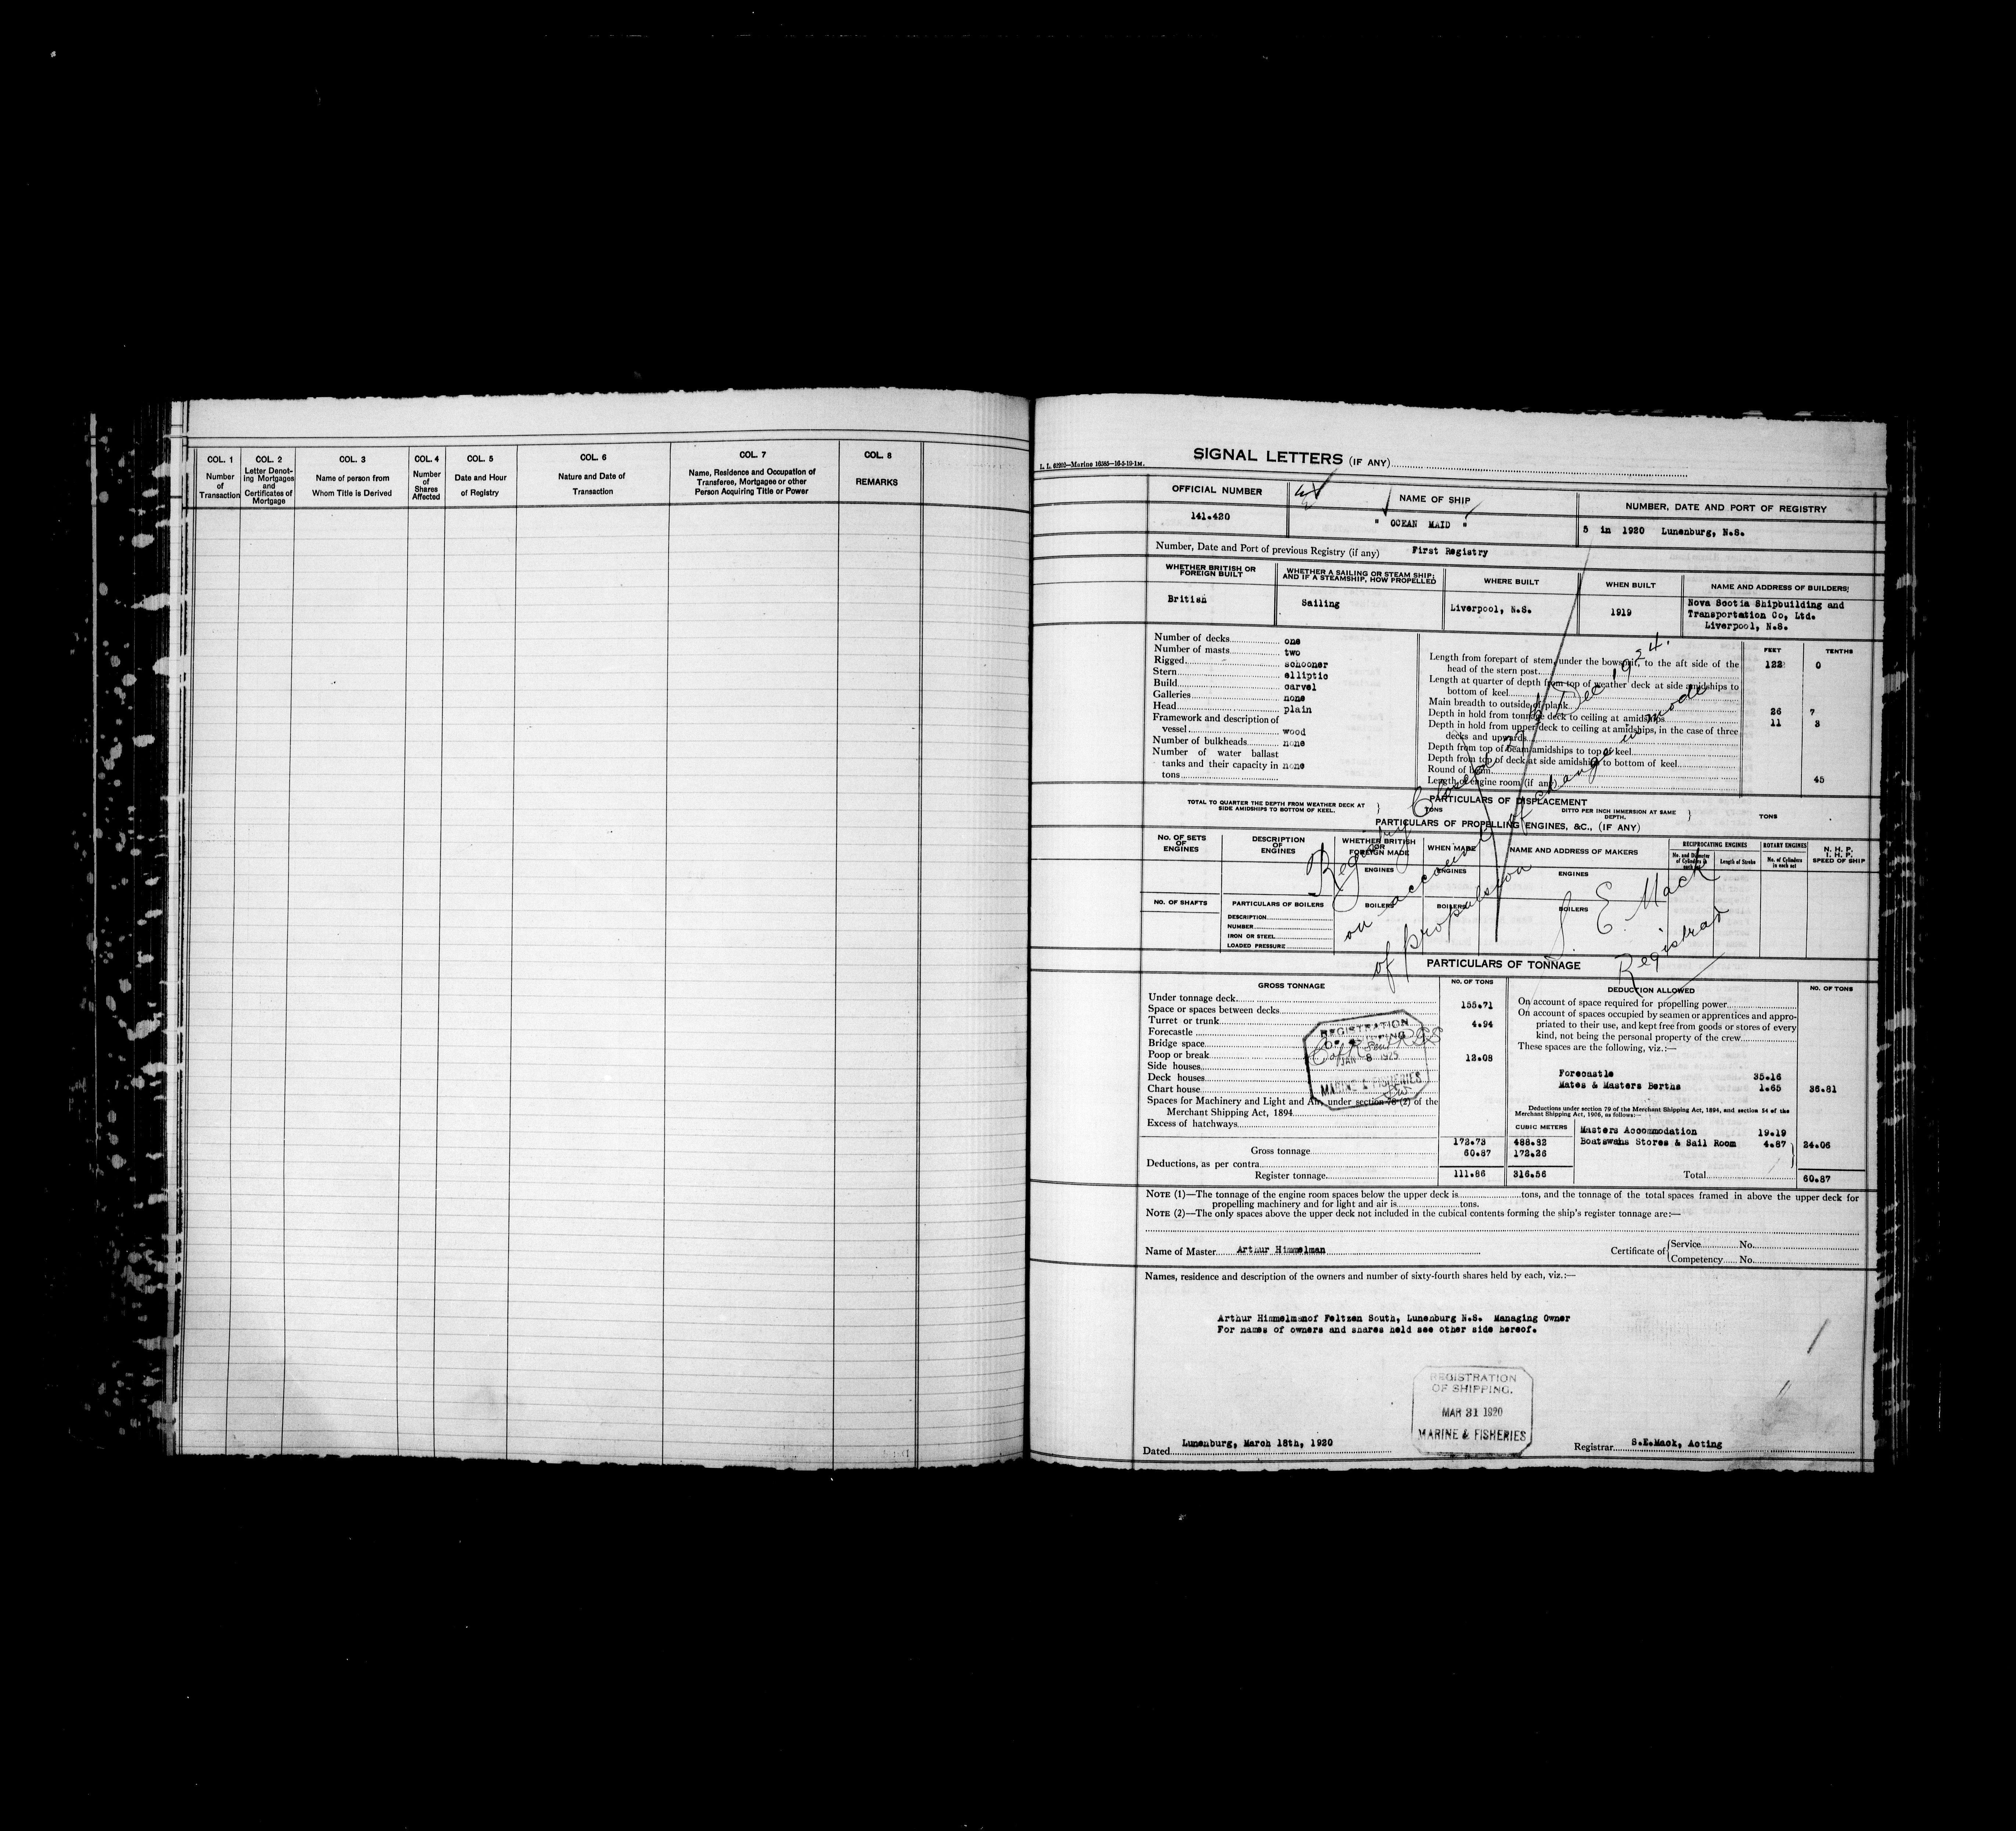 COL. 1
Number
of
Transaction
COL. 2
Letter Denot-
ing Mortgages
and
Certificates of
Mortgage
COL. 3
Name of person from
Whom Title is Derived
COL. 4
Number
of
Shares
Affected
COL. 5
Date and Hour
of Registry
COL. 6
Nature and Date of
Transaction
COL. 7
Name, Residence and Occupation of
Transferee, Mortgagee or other
Person Acquiring Title or Power
COL. 8
REMARKS
SIGNAL LETTERS (IF ANY)
OFFICIAL NUMBER
NAME OF SHIP
NUMBER, DATE AND PORT OF REGISTRY
141.420
" OCEAN MAID "
5 in 1920 Lunenburg, N.S.
Number, Date and Port of previous Registry (if any) First Registry
WHETHER BRITISH OR
FOREIGN BUILT
WHETHER A SAILING OR STEAM SHIP;
AND IF A STEAMSHIP, HOW PROPELLED
WHERE BUILT
WHEN BUILT
NAME AND ADDRESS OF BUILDERS
British
Sailing
Liverpool, N.S.
1919
Nova Scotia Shipbuilding and
Transportation Co, Ltd.
Liverpool, N.S.
Number of decks one
Number of masts two
Rigged schooner
Stern elliptic
Build carvel
Galleries none
Head plain
Framework and description of
vessel wood
Number of bulkheads none
Number of water ballast
tanks and their capacity in none
tons
FEET TENTHS
Length from forepart of stem, under the bowsprit, to the aft side of the
head of the stern post 122 0
Length at quarter of depth from top of weather deck at side amidships to
bottom of keel
Main breadth to outside of plank 26 7
Depth in hold from tonnage deck to ceiling at amidships 11 3
Depth in hold from upper deck to ceiling at amidships, in the case of three
decks and upwards
Depth from top of beam amidships to top of keel
Depth from top of deck at side amidships to bottom of keel
Round of beam 45
Length of engine room (if any)
Registry Closed Dec 1924.
on account of change in mode
of propulsion
S. E. Mack
Registrar
PARTICULARS OF DISPLACEMENT
TOTAL TO QUARTER THE DEPTH FROM WEATHER DECK AT
SIDE AMIDSHIPS TO BOTTOM OF KEEL.
TONS
DITTO PER INCH IMMERSION AT SAME
DEPTH.
TONS
PARTICULARS OF PROPELLING ENGINES, &C., (IF ANY)
NO. OF SETS
OF
ENGINES
DESCRIPTION
OF
ENGINES
WHETHER BRITISH
OR
FOREIGN MADE
WHEN MADE
NAME AND ADDRESS OF MAKERS
RECIPROCATING ENGINES
No. and Diameter
of Cylinders in
each set
Length of Stroke
ROTARY ENGINES
No. of Cylinders
in each set
N. H. P.
I. H. P.
SPEED OF SHIP
ENGINES
ENGINES
ENGINES
NO. OF SHAFTS
PARTICULARS OF BOILERS
BOILERS
BOILERS
BOILERS
DESCRIPTION
NUMBER
IRON OR STEEL
LOADED PRESSURE
PARTICULARS OF TONNAGE
GROSS TONNAGE
NO. OF TONS
DEDUCTION ALLOWED
NO. OF TONS
Under tonnage deck 155.71
Space or spaces between decks
Turret or trunk 4.94
Forecastle
Bridge space
Poop or break 12.08
Side houses
Deck houses
Chart house
Spaces for Machinery and Light and Air, under section 78 (2) of the
Merchant Shipping Act, 1894
Excess of hatchways
REGISTRATION
OF SHIPPING
JAN 8 1925
MARINE & FISHERIES
Gross tonnage 172.73 488.82
Deductions, as per contra 60.87 172.26
Register tonnage 111.86 316.56
CUBIC METERS
On account of space required for propelling power
On account of spaces occupied by seamen or apprentices and appro-
priated to their use, and kept free from goods or stores of every
kind, not being the personal property of the crew
These spaces are the following, viz.:—
Forecastle 35.16
Mates & Masters Berths 1.65 36.81
Deductions under section 79 of the Merchant Shipping Act, 1894, and section 54 of the
Merchant Shipping Act, 1906, as follows:—
Masters Accommodation 19.19
Boatswains Stores & Sail Room 4.87 24.06
Total 60.87
NOTE (1)—The tonnage of the engine room spaces below the upper deck is tons, and the tonnage of the total spaces framed in above the upper deck for
propelling machinery and for light and air is tons.
NOTE (2)—The only spaces above the upper deck not included in the cubical contents forming the ship's register tonnage are:—
Name of Master Arthur Himmelman
Certificate of Service No.
Competency No.
Names, residence and description of the owners and number of sixty-fourth shares held by each, viz.:—
Arthur Himmelmanof Feltzen South, Lunenburg N.S. Managing Owner
For names of owners and shares held see other side hereof.
REGISTRATION
OF SHIPPING.
MAR 31 1920
MARINE & FISHERIES
Dated Lunenburg, March 18th, 1920
Registrar S.E.Mack, Acting